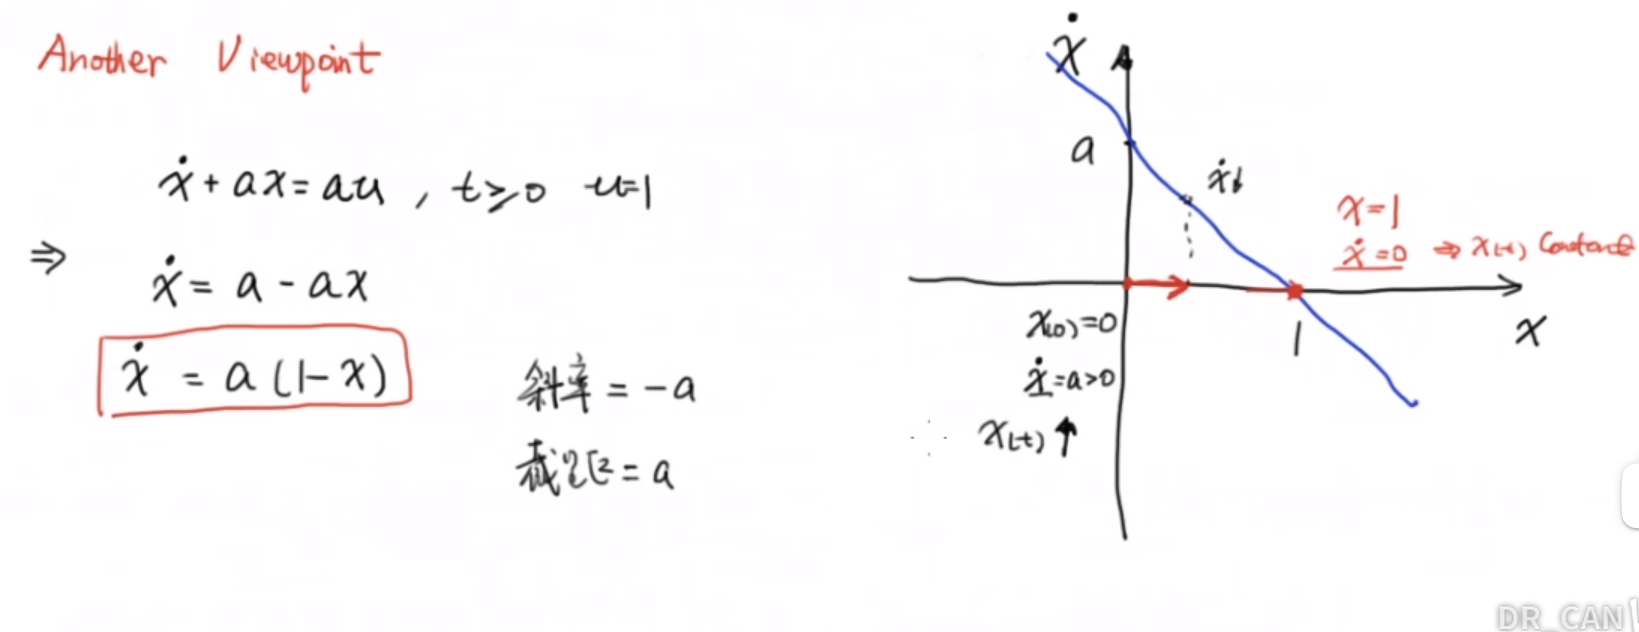 Another Viewpoint
ẋ + ax = au , t ≥ 0 u=1
⇒
ẋ = a - ax
ẋ = a (1- x)
斜率 = -a
截距 = a
ẋ
a
ẋ↓
x=1
ẋ=0 ⇒ x(t) Constant
x(0)=0
ẋ=a>0
x(t) ↑
1
x
DR_CAN